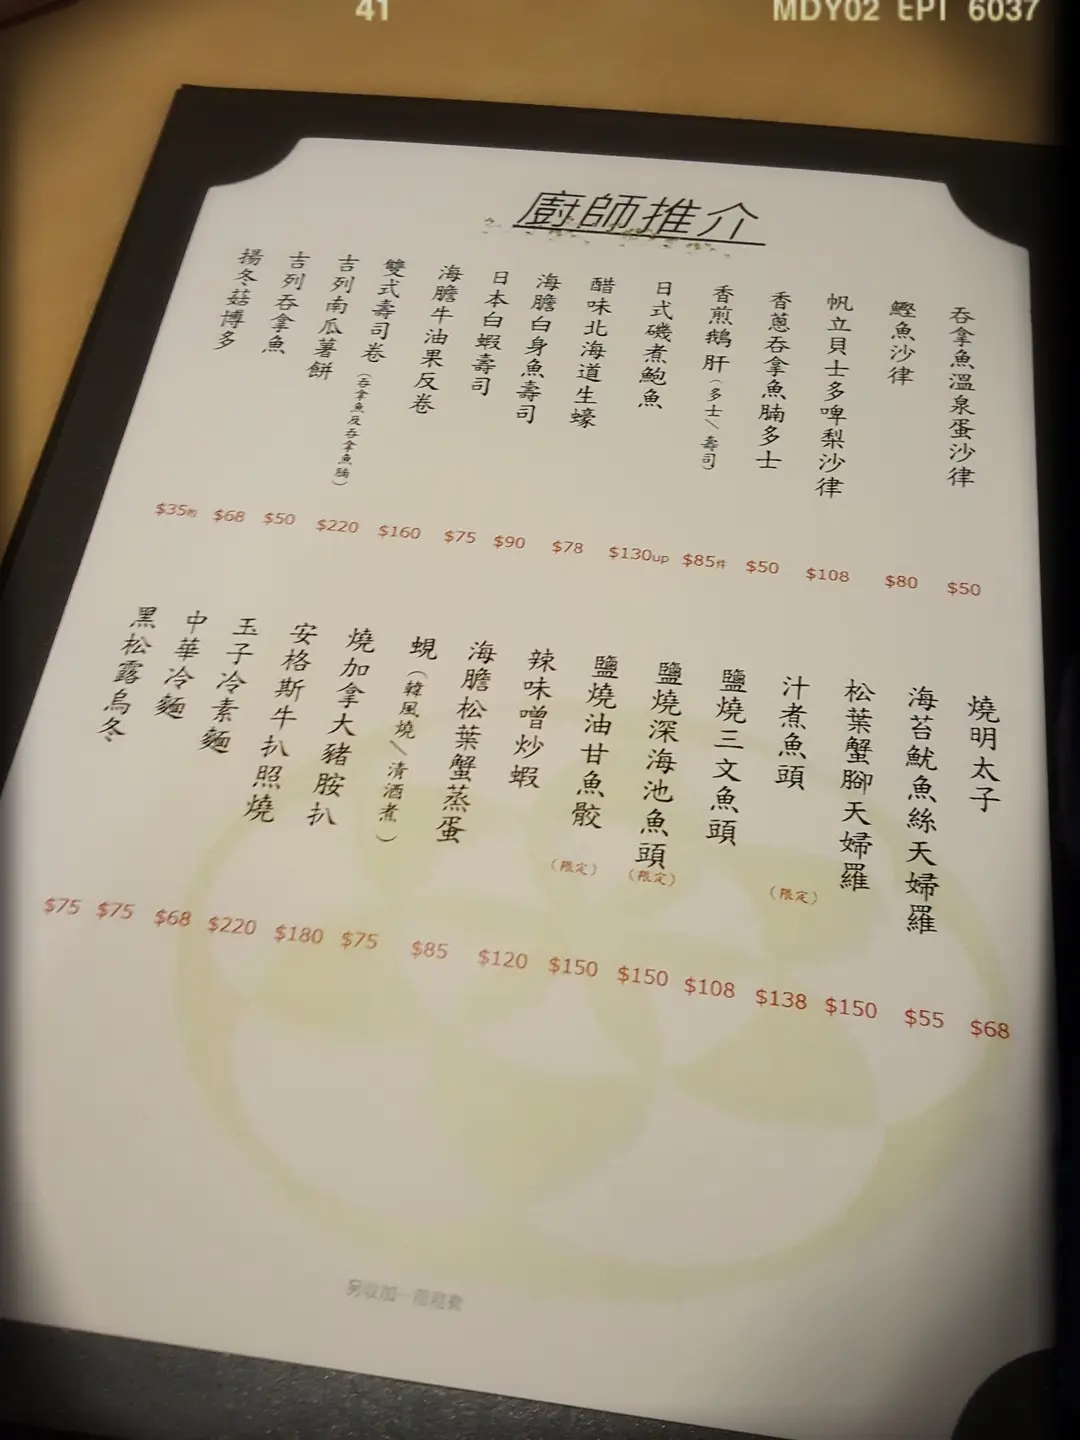 41
MDY02 EPI 6037
廚師推介
吞拿魚溫泉蛋沙律 $50
鰹魚沙律 $80
帆立貝士多啤梨沙律 $108
香蔥吞拿魚腩多士 $50
香煎鵝肝(多士\壽司) $85件
日式磯煮鮑魚 $130up
醋味北海道生蠔 $78
海膽白身魚壽司 $90
日本白蝦壽司 $75
海膽牛油果反卷 $160
雙式壽司卷(吞拿魚及吞拿魚腩) $220
吉列南瓜薯餅 $50
吉列吞拿魚 $68
揚冬菇博多 $35粒
燒明太子 $68
海苔魷魚絲天婦羅 $55
松葉蟹腳天婦羅 $150
汁煮魚頭(限定) $138
鹽燒三文魚頭 $108
鹽燒深海池魚頭(限定) $150
鹽燒油甘魚骹(限定) $150
辣味噌炒蝦 $120
海膽松葉蟹蒸蛋 $85
蜆(韓風燒\清酒煮) $75
燒加拿大豬胺扒 $180
安格斯牛扒照燒 $220
玉子冷素麵 $68
中華冷麵 $75
黑松露烏冬 $75
另收加一服務費